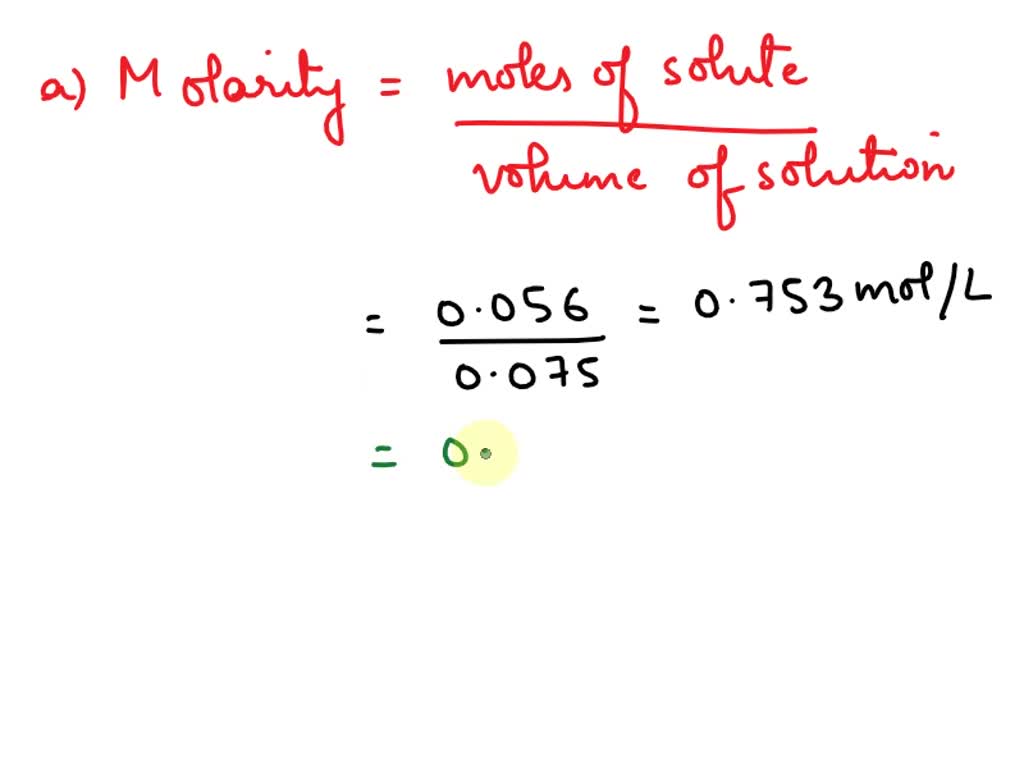 a) Molarity = moles of solute
volume of solution
= 0.056 = 0.753 mol/L
0.075
= 0.